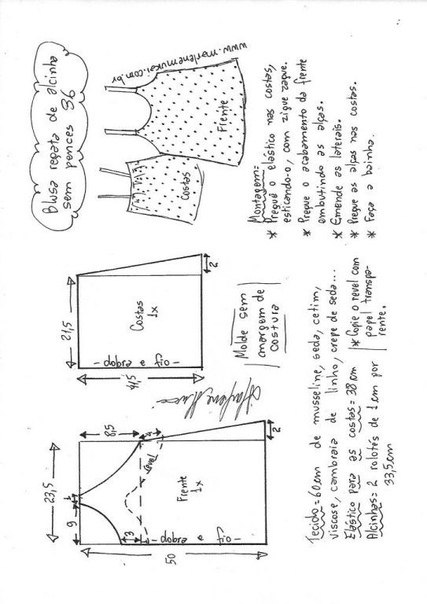 Blusa regata de alcinha
sem pences 36
www.marlenemukai.com.br
Costas
Frente
Montagem:
* Pregue o elástico nas costas,
esticando-o, com zigue zague.
* Pregue o acabamento da frente
embutindo as alças.
* Emende as laterais.
* Pregue as alças nas costas.
* Faça a bainha.
21,5
Costas
1x
- dobra e fio -
41,5
2
Molde sem
margem de
costura
23,5
9
1
8,5
4
Revel
3
Frente
1x
- dobra e fio -
50
2
Tecido = 60cm de musseline, seda, cetim,
viscose, cambraia de linho, crepe de seda...
Elástico para as costas = 38cm
Alcinhas = 2 rolotés de 1cm por
33,5cm
* Copie o revel com
papel transpa-
rente.